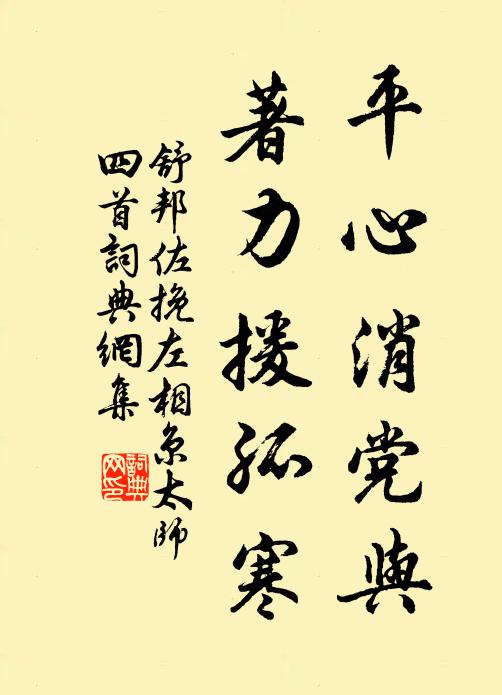 平心消党與
著力援孤寒
舒邦佐挽左相京太師
四首詞典網集
詞典
网印